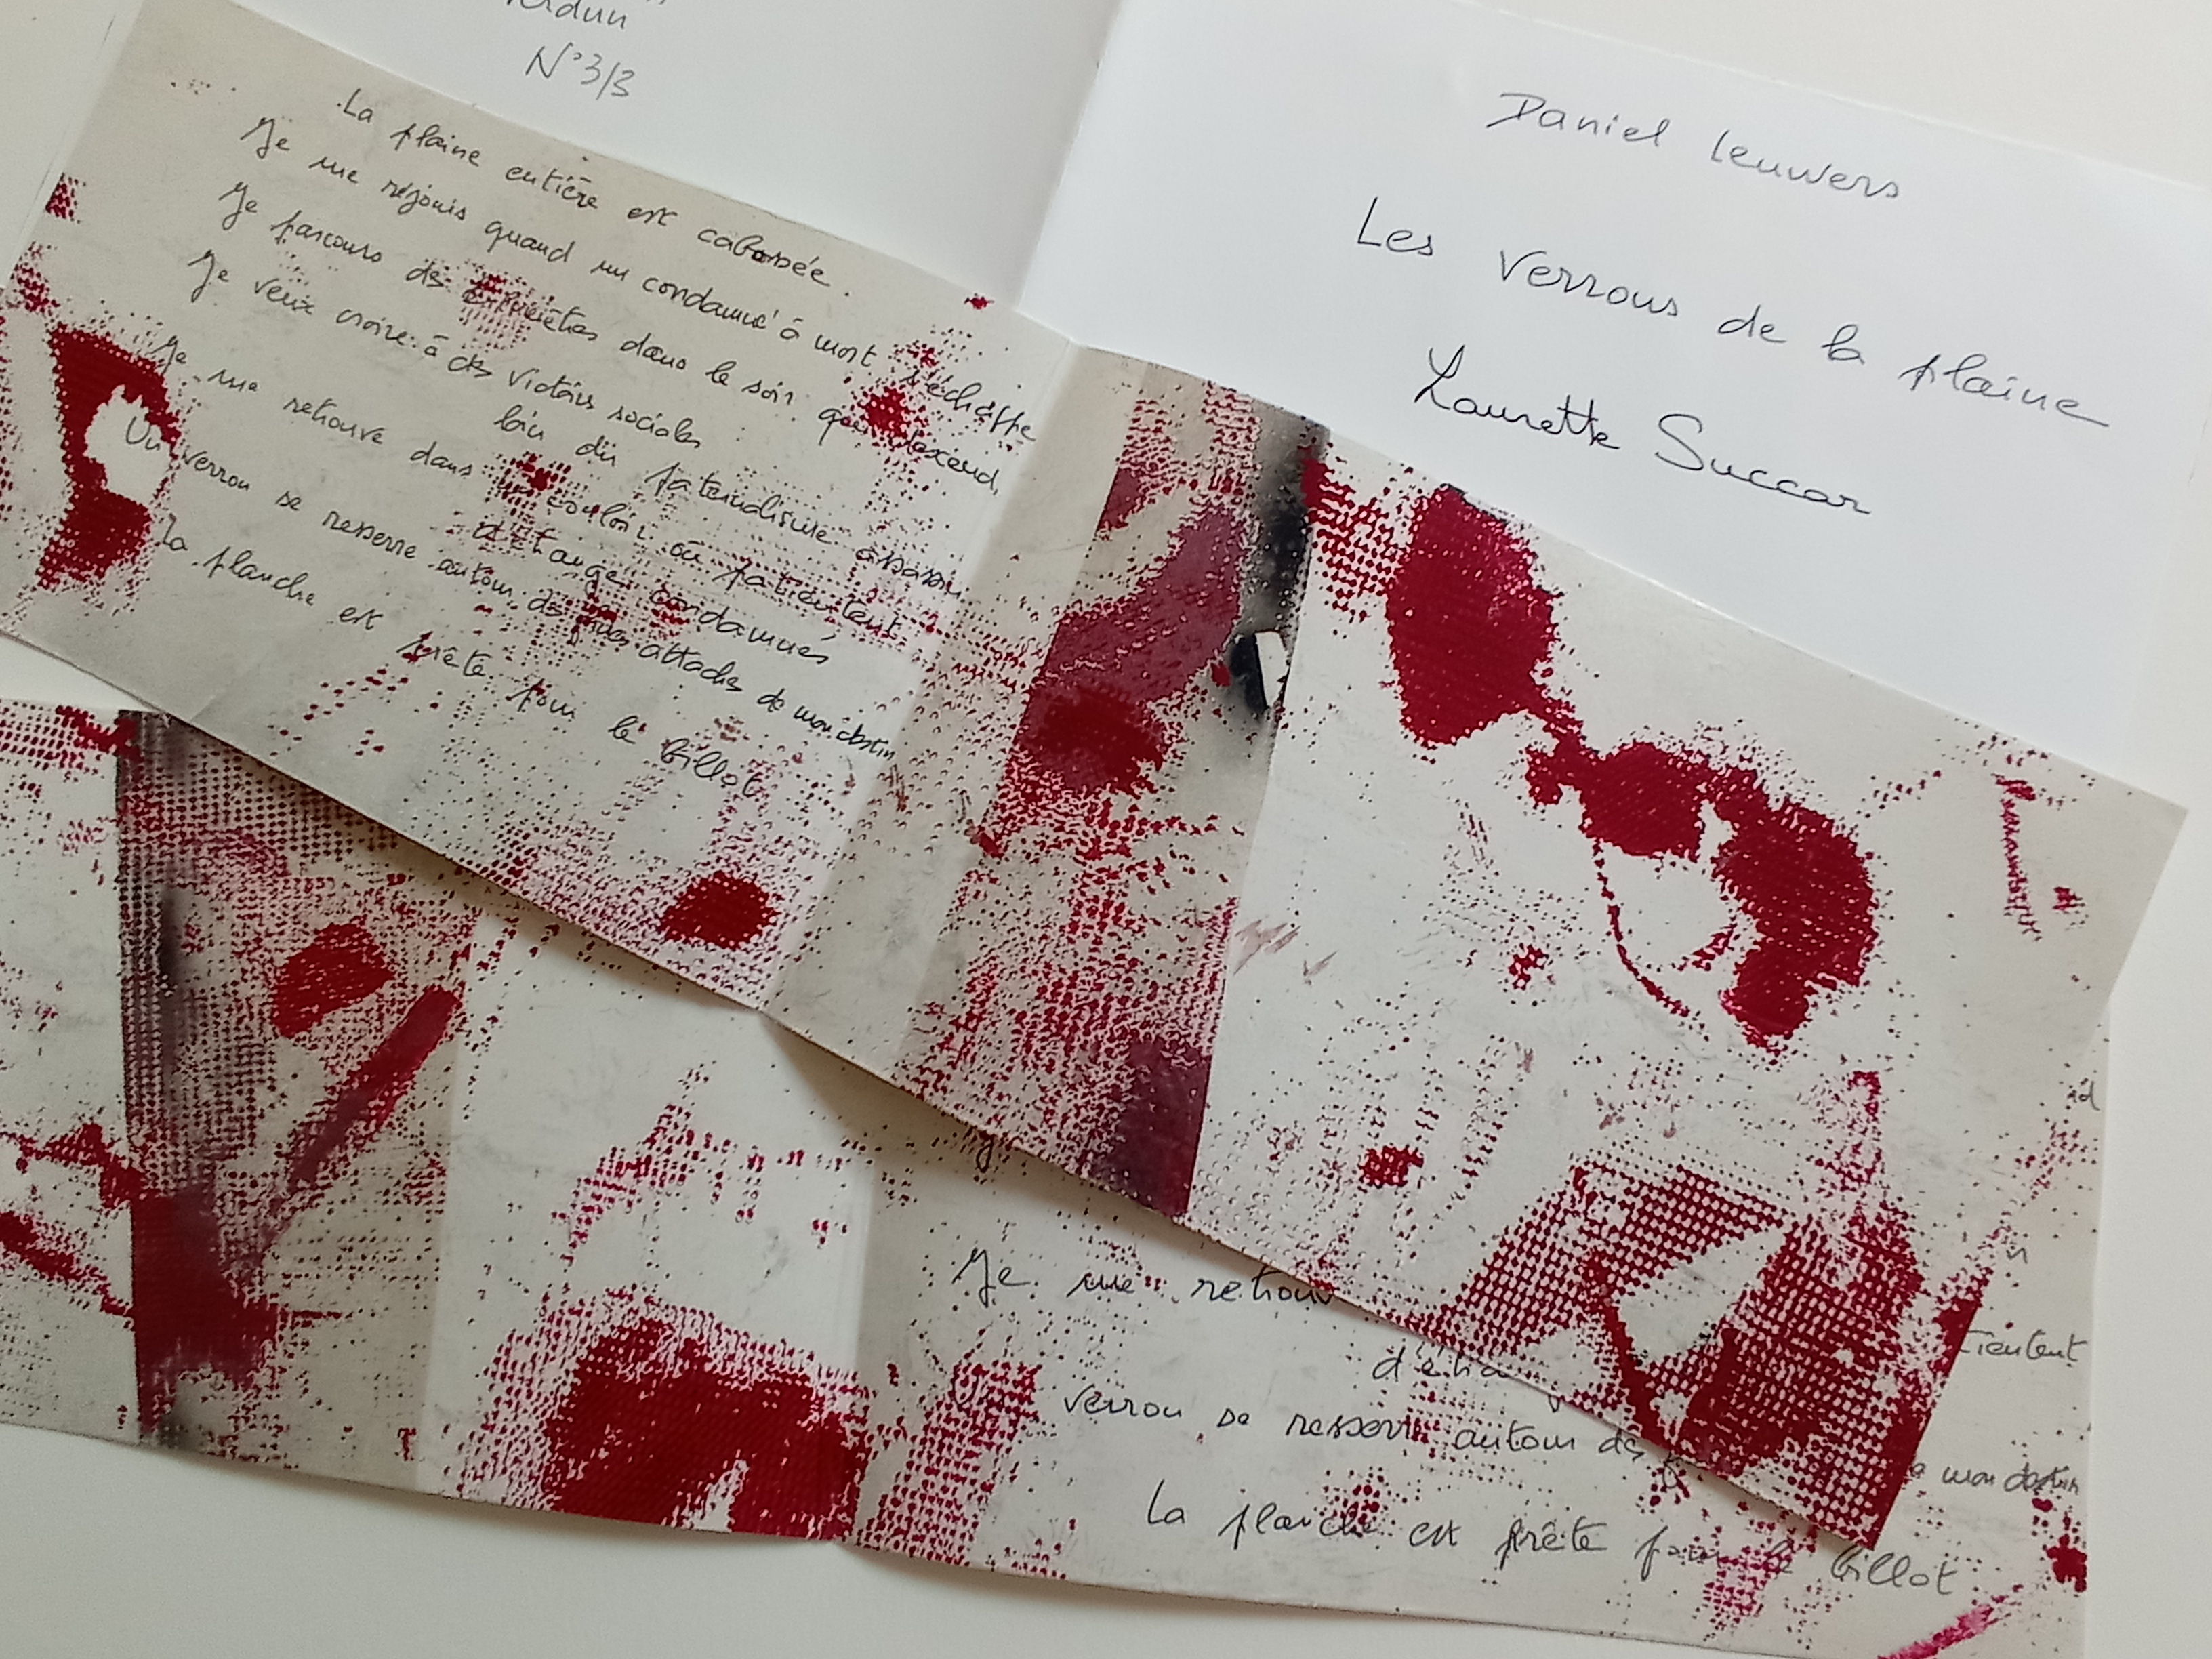 Verdun
N°3/3
Daniel Leuwers
Les Verrous de la plaine
Laurette Succar
La plaine entière est cabossée.
Je me réjouis quand un condamné à mort s'échappe
Je parcours des dans le soir qui descend,
Je veux croire à des victoires sociales
loin du paternalisme assassin
Je me retrouve dans le couloir où patientent
d'étranges condamnés
Un verrou se resserre autour des attaches de mon destin
La planche est prête pour le billot
Je me retrouv
tientent
d'étra
verrou se resserre autour des
mon destin
La planche est prête pour le billot